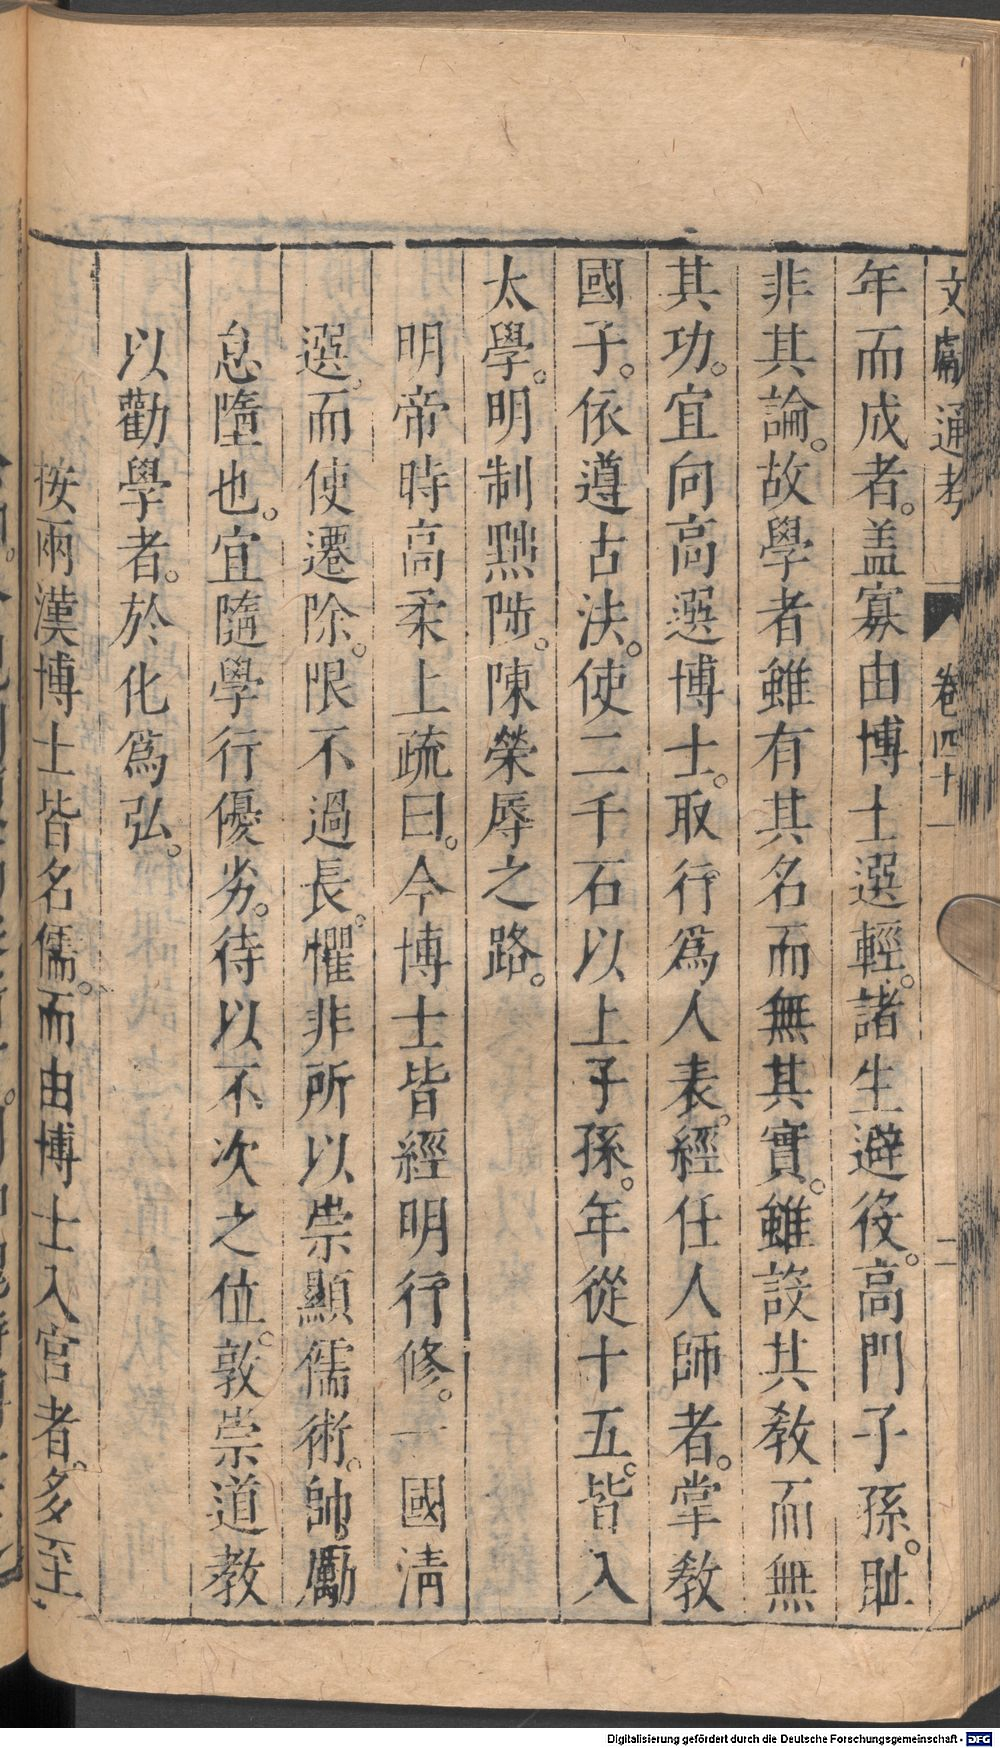 文獻通考
卷四十一
二
年而成者。盖寡由博士選輕。諸生避役。高門子孫。耻
非其論。故學者雖有其名而無其實。雖設其教而無
其功。宜向高選博士。取行爲人表。經任人師者。掌教
國子。依遵古法。使二千石以上子孫。年從十五。皆入
太學。明制黜陟。陳榮辱之路。
明帝時高柔上疏曰。今博士皆經明行修。一國清
選。而使遷除。限不過長。懼非所以崇顯儒術。帥勵
怠墮也。宜隨學行優劣。待以不次之位。敦崇道教
以勸學者。於化爲弘。
按兩漢博士皆名儒。而由博士入宫者。多至
Digitalisierung gefördert durch die Deutsche Forschungsgemeinschaft - DFG